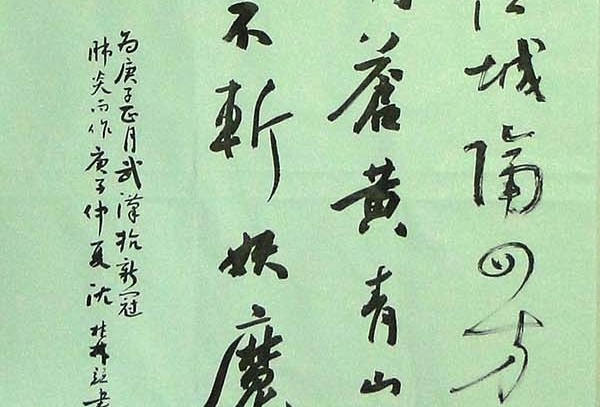 城隔四方
蒼黄青山
不斬妖魔
为庚子正月武漢抗新冠
肺炎而作庚子仲夏沈